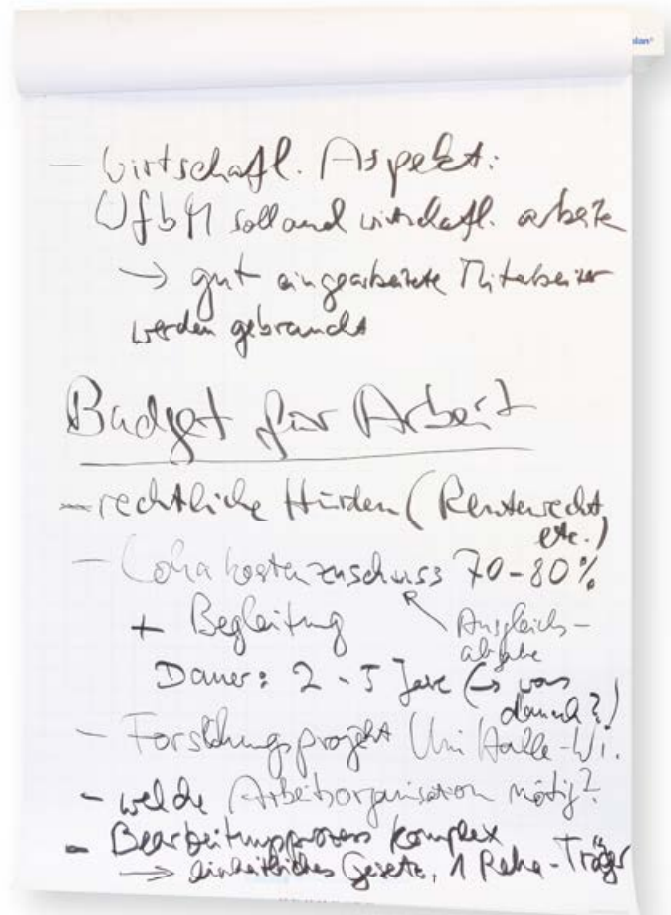 plan®
– wirtschaftl. Aspekt:
WfbM soll auch wirtschaftl. arbeite
→ gut eingearbeitete Mitarbeiter
werden gebraucht
Budget für Arbeit
– rechtliche Hürden (Rentenrecht
etc.)
– Lohnkostenzuschuss 70-80%
+ Begleitung
Ausgleich-
abgabe
Dauer: 2-5 Jare (→ was
danach?)
– Forschungsprojekt Uni Halle-Wi.
– welche Arbeitsorganisation nötig?
– Bearbeitungsprozess komplex
→ einheitliches Gesetz, 1 Reha-Träger